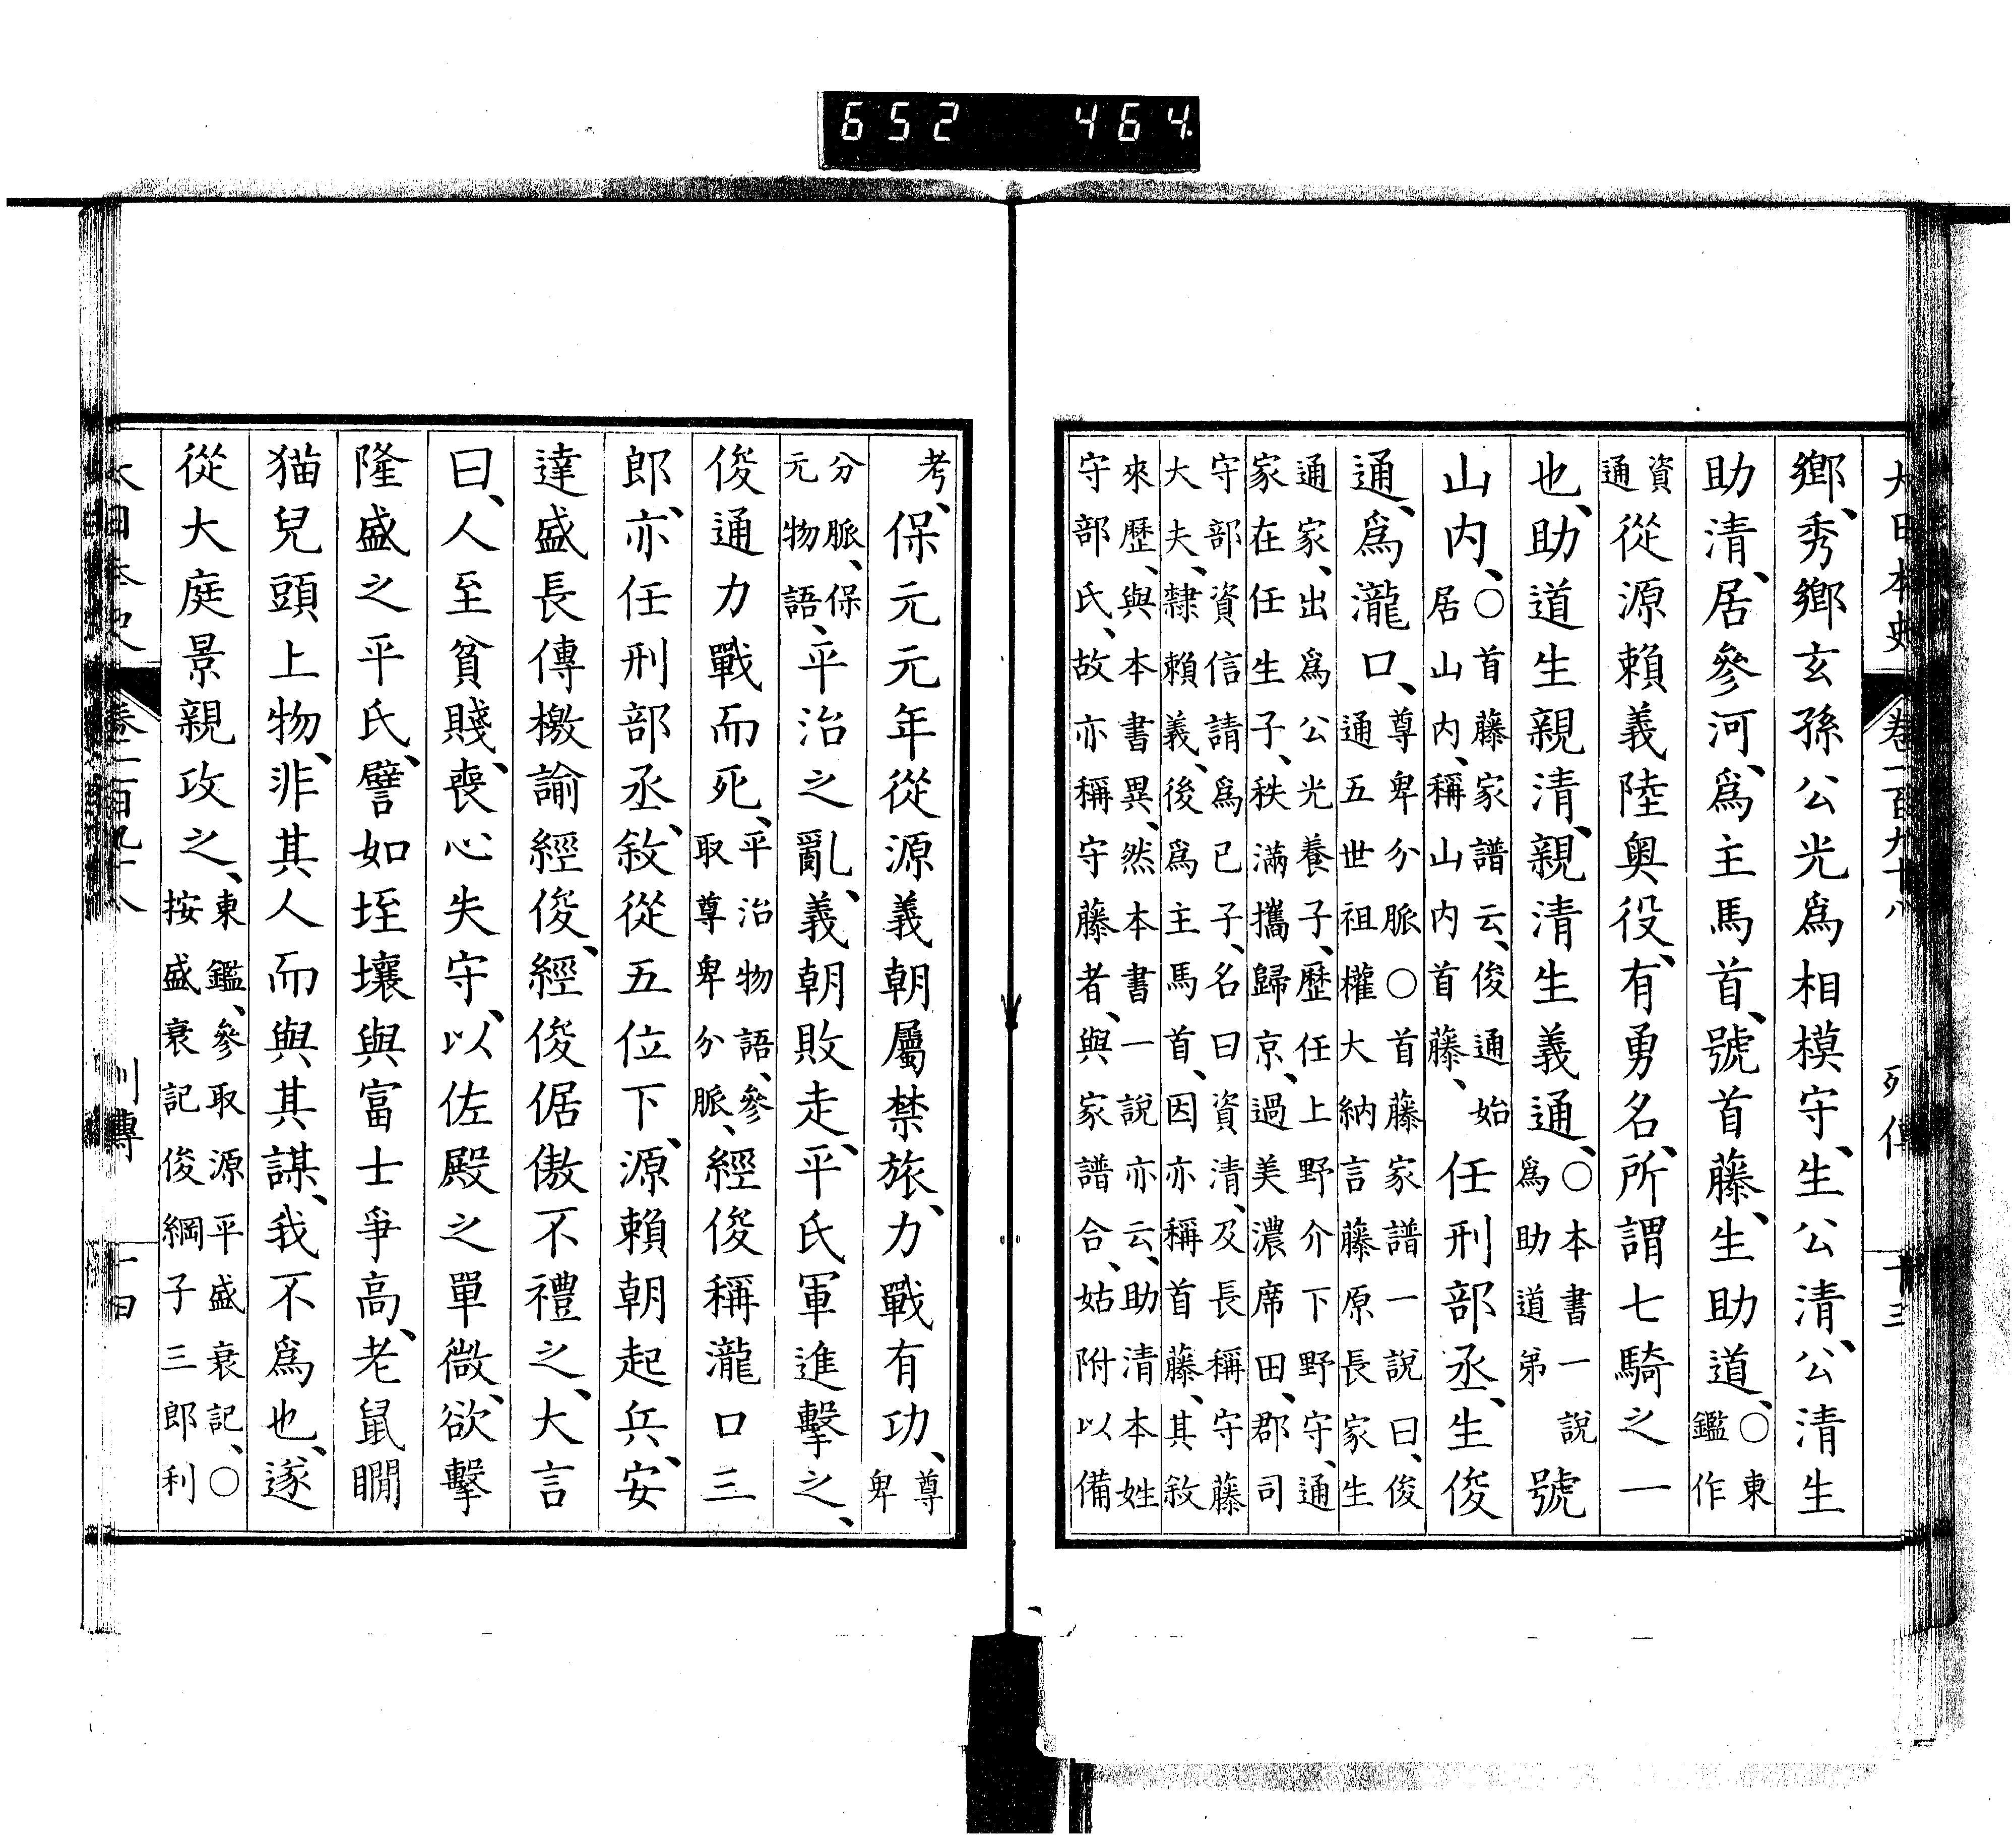 652 464
大日本史 卷一百九十八 列傳 十三
鄉、秀鄉玄孫公光爲相模守、生公清、公清生
助清、居參河、爲主馬首、號首藤、生助道、○東
鑑作
資
通從源賴義陸奧役、有勇名、所謂七騎之一
也、助道生親清、親清生義通、○本書一說
爲助道弟號
山内、○首藤家譜云、俊通始
居山内、稱山内首藤、任刑部丞、生俊
通、爲瀧口、尊卑分脈○首藤家譜一說曰、俊
通五世祖權大納言藤原長家生
通家、出爲公光養子、歷任上野介下野守、通
家在任生子、秩滿攜歸京、過美濃席田、郡司
守部資信請爲己子、名曰資清、及長稱守藤
大夫、隸賴義、後爲主馬首、因亦稱首藤、其敘
來歷、與本書異、然本書一說亦云、助清本姓
守部氏、故亦稱守藤者、與家譜合、姑附以備
考、保元元年從源義朝屬禁旅、力戰有功、尊
卑
分脈、保
元物語、平治之亂、義朝敗走、平氏軍進擊之、
俊通力戰而死、平治物語、參
取尊卑分脈、經俊稱瀧口三
郎、亦任刑部丞、敘從五位下、源賴朝起兵、安
達盛長傳檄諭經俊、經俊倨傲不禮之、大言
曰、人至貧賤、喪心失守、以佐殿之單微、欲擊
隆盛之平氏、譬如垤壤與富士爭高、老鼠瞷
猫兒頭上物、非其人而與其謀、我不爲也、遂
從大庭景親攻之、東鑑、參取源平盛衰記、○
按盛衰記俊綱子三郎利
大日本史 卷一百九十八 列傳 十四